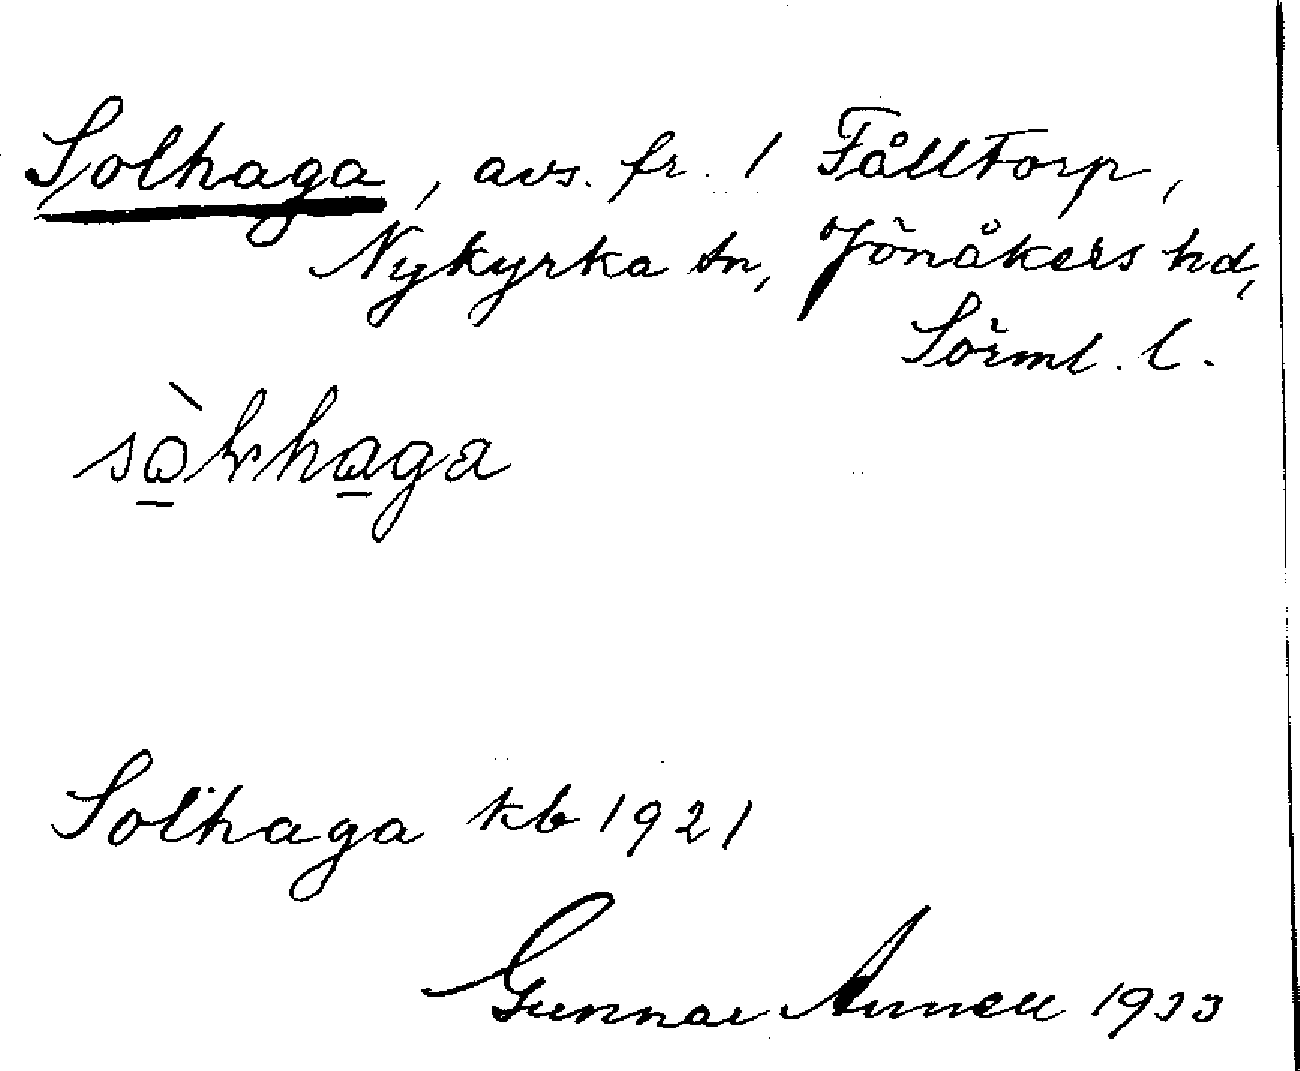 Solhaga, avs. fr. 1 Fålltorp,
Nykyrka sn, Jönåkers hd,
Sörml. l.
Solhaga kb 1921
Gunnar Annell 1933